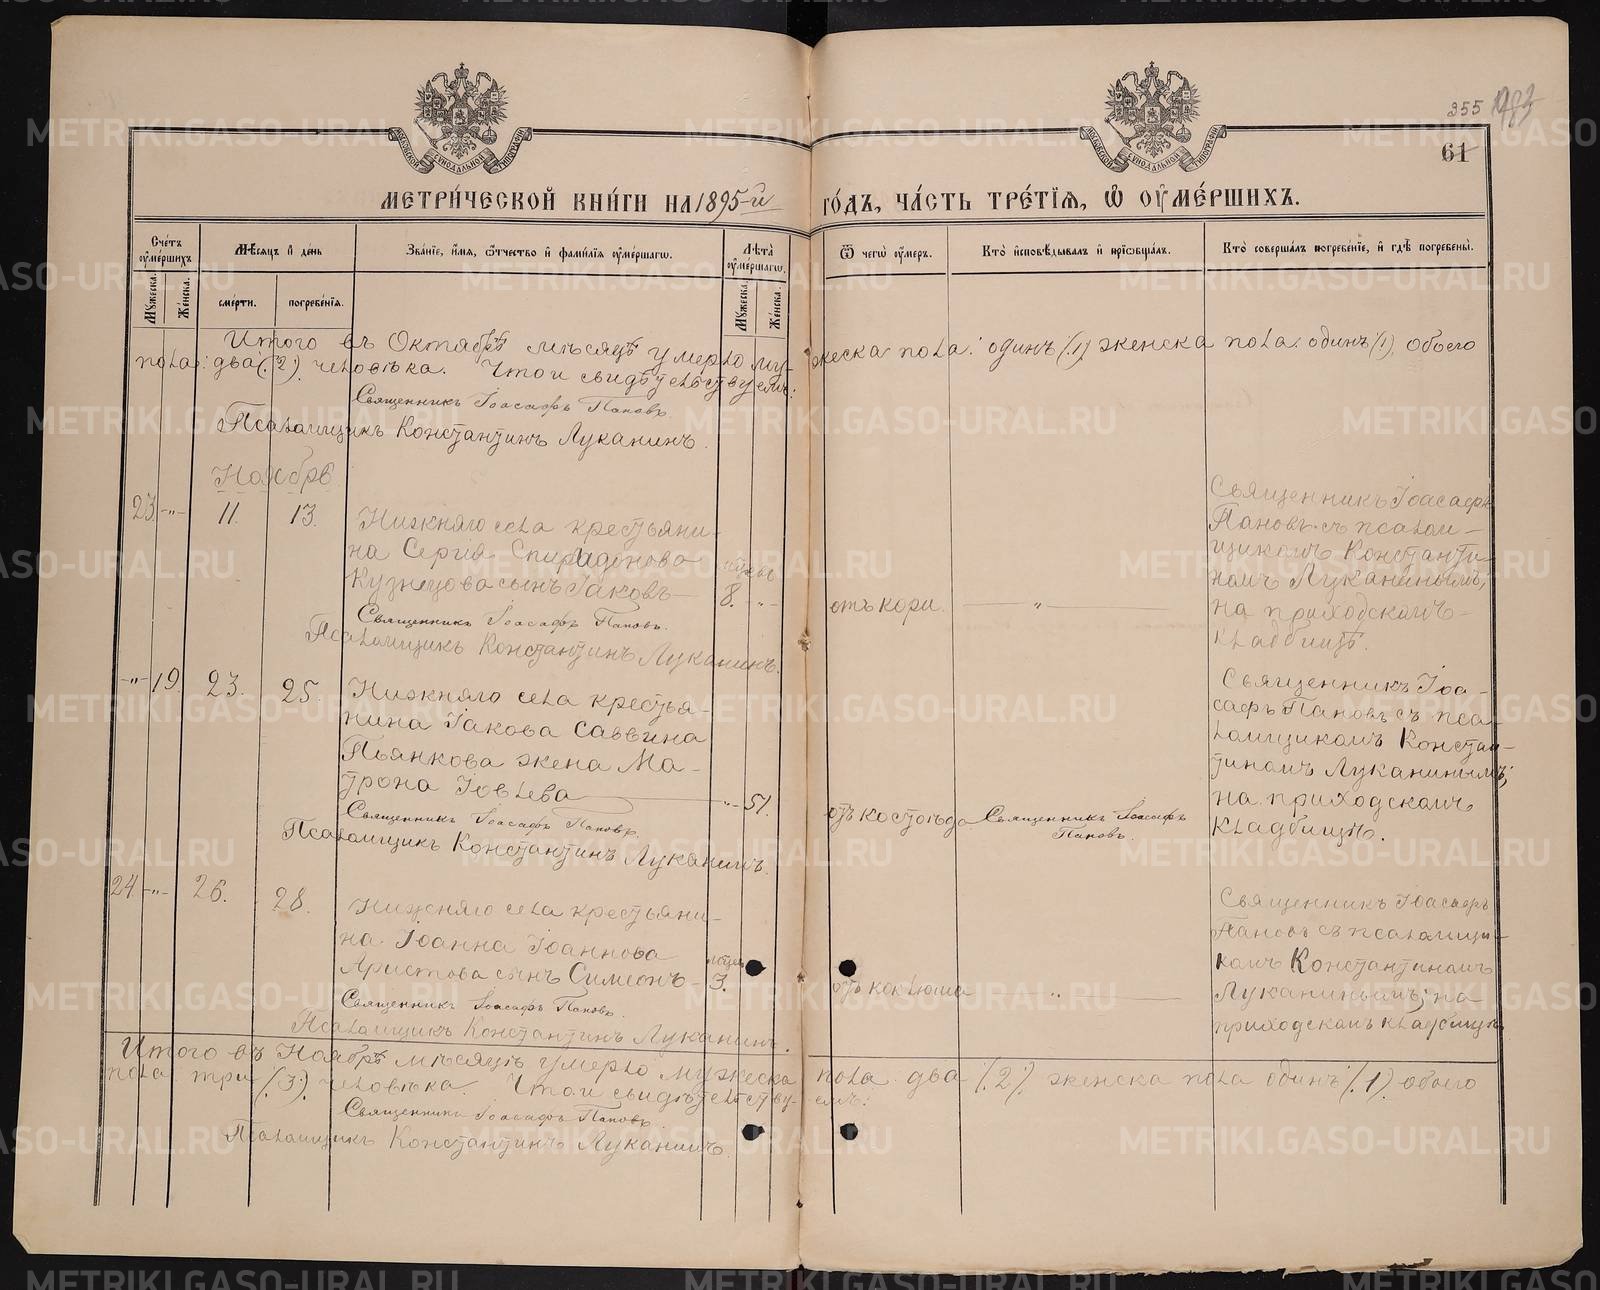 355 983
61
МЕТРИЧЕСКОЙ КНИГИ НА 1895-й ГОДЪ, ЧАСТЬ ТРЕТІЯ, Ѡ ОУМЕРШИХЪ.
Счетъ оумершихъ.
Мѣсяцъ и день
Званіе, имя, ѿчество и фамилія оумершагѡ.
Лѣта оумершагѡ.
Ѿ чегѡ оумеръ.
Кто исповѣдывалъ и пріобщалъ.
Кто совершалъ погребеніе, и гдѣ погребены.
Мужеска. Женска. смерти. погребенія. Мужеска. Женска.
Итого въ Октябрѣ мѣсяцѣ умерло мужеска пола: одинъ (.1) женска пола: одинъ (1), обоего
пола: два (.2.) человѣка. Что и свидѣтельствуемъ:
Священникъ Іоасафъ Пановъ.
Псаломщикъ Константинъ Луканинъ.
Ноябрь
23. -"- 11. 13.
Нижняго села крестьяни-
на Сергія Спиридонова
Кузнецова сынъ Іаковъ 8. -"-
отъ кори. - " -
Священникъ Іоасафъ
Пановъ съ псалом-
щикомъ Константи-
номъ Луканинымъ;
на приходскомъ
кладбищѣ.
Священникъ Іоасафъ Пановъ.
Псаломщикъ Константинъ Луканинъ.
-"- 19. 23. 25.
Нижняго села крестья-
нина Іакова Саввина
Пьянкова жена Ма-
трона Іовлева -"- 51.
отъ костоѣда
Священникъ Іоасафъ
Пановъ.
Священникъ Іоа-
сафъ Пановъ съ пса-
ломщикомъ Констан-
тиномъ Луканинымъ;
на приходскомъ
кладбищѣ.
Священникъ Іоасафъ Пановъ.
Псаломщикъ Константинъ Луканинъ.
24. -"- 26. 28.
Нижняго села крестьяни-
на Іоанна Іоаннова
Аристова сынъ Симеонъ 3.
отъ коклюша - " -
Священникъ Іоасафъ
Пановъ съ псаломщи-
комъ Константиномъ
Луканинымъ; на
приходскомъ кладбищѣ
Священникъ Іоасафъ Пановъ.
Псаломщикъ Константинъ Луканинъ.
Итого въ Ноябрѣ мѣсяцѣ умерло мужеска пола два (.2.) женска пола одинъ (.1.) обоего
пола три (.3.) человѣка. Что и свидѣтельствуемъ:
Священникъ Іоасафъ Пановъ.
Псаломщикъ Константинъ Луканинъ.
METRIKI.GASO-URAL.RU